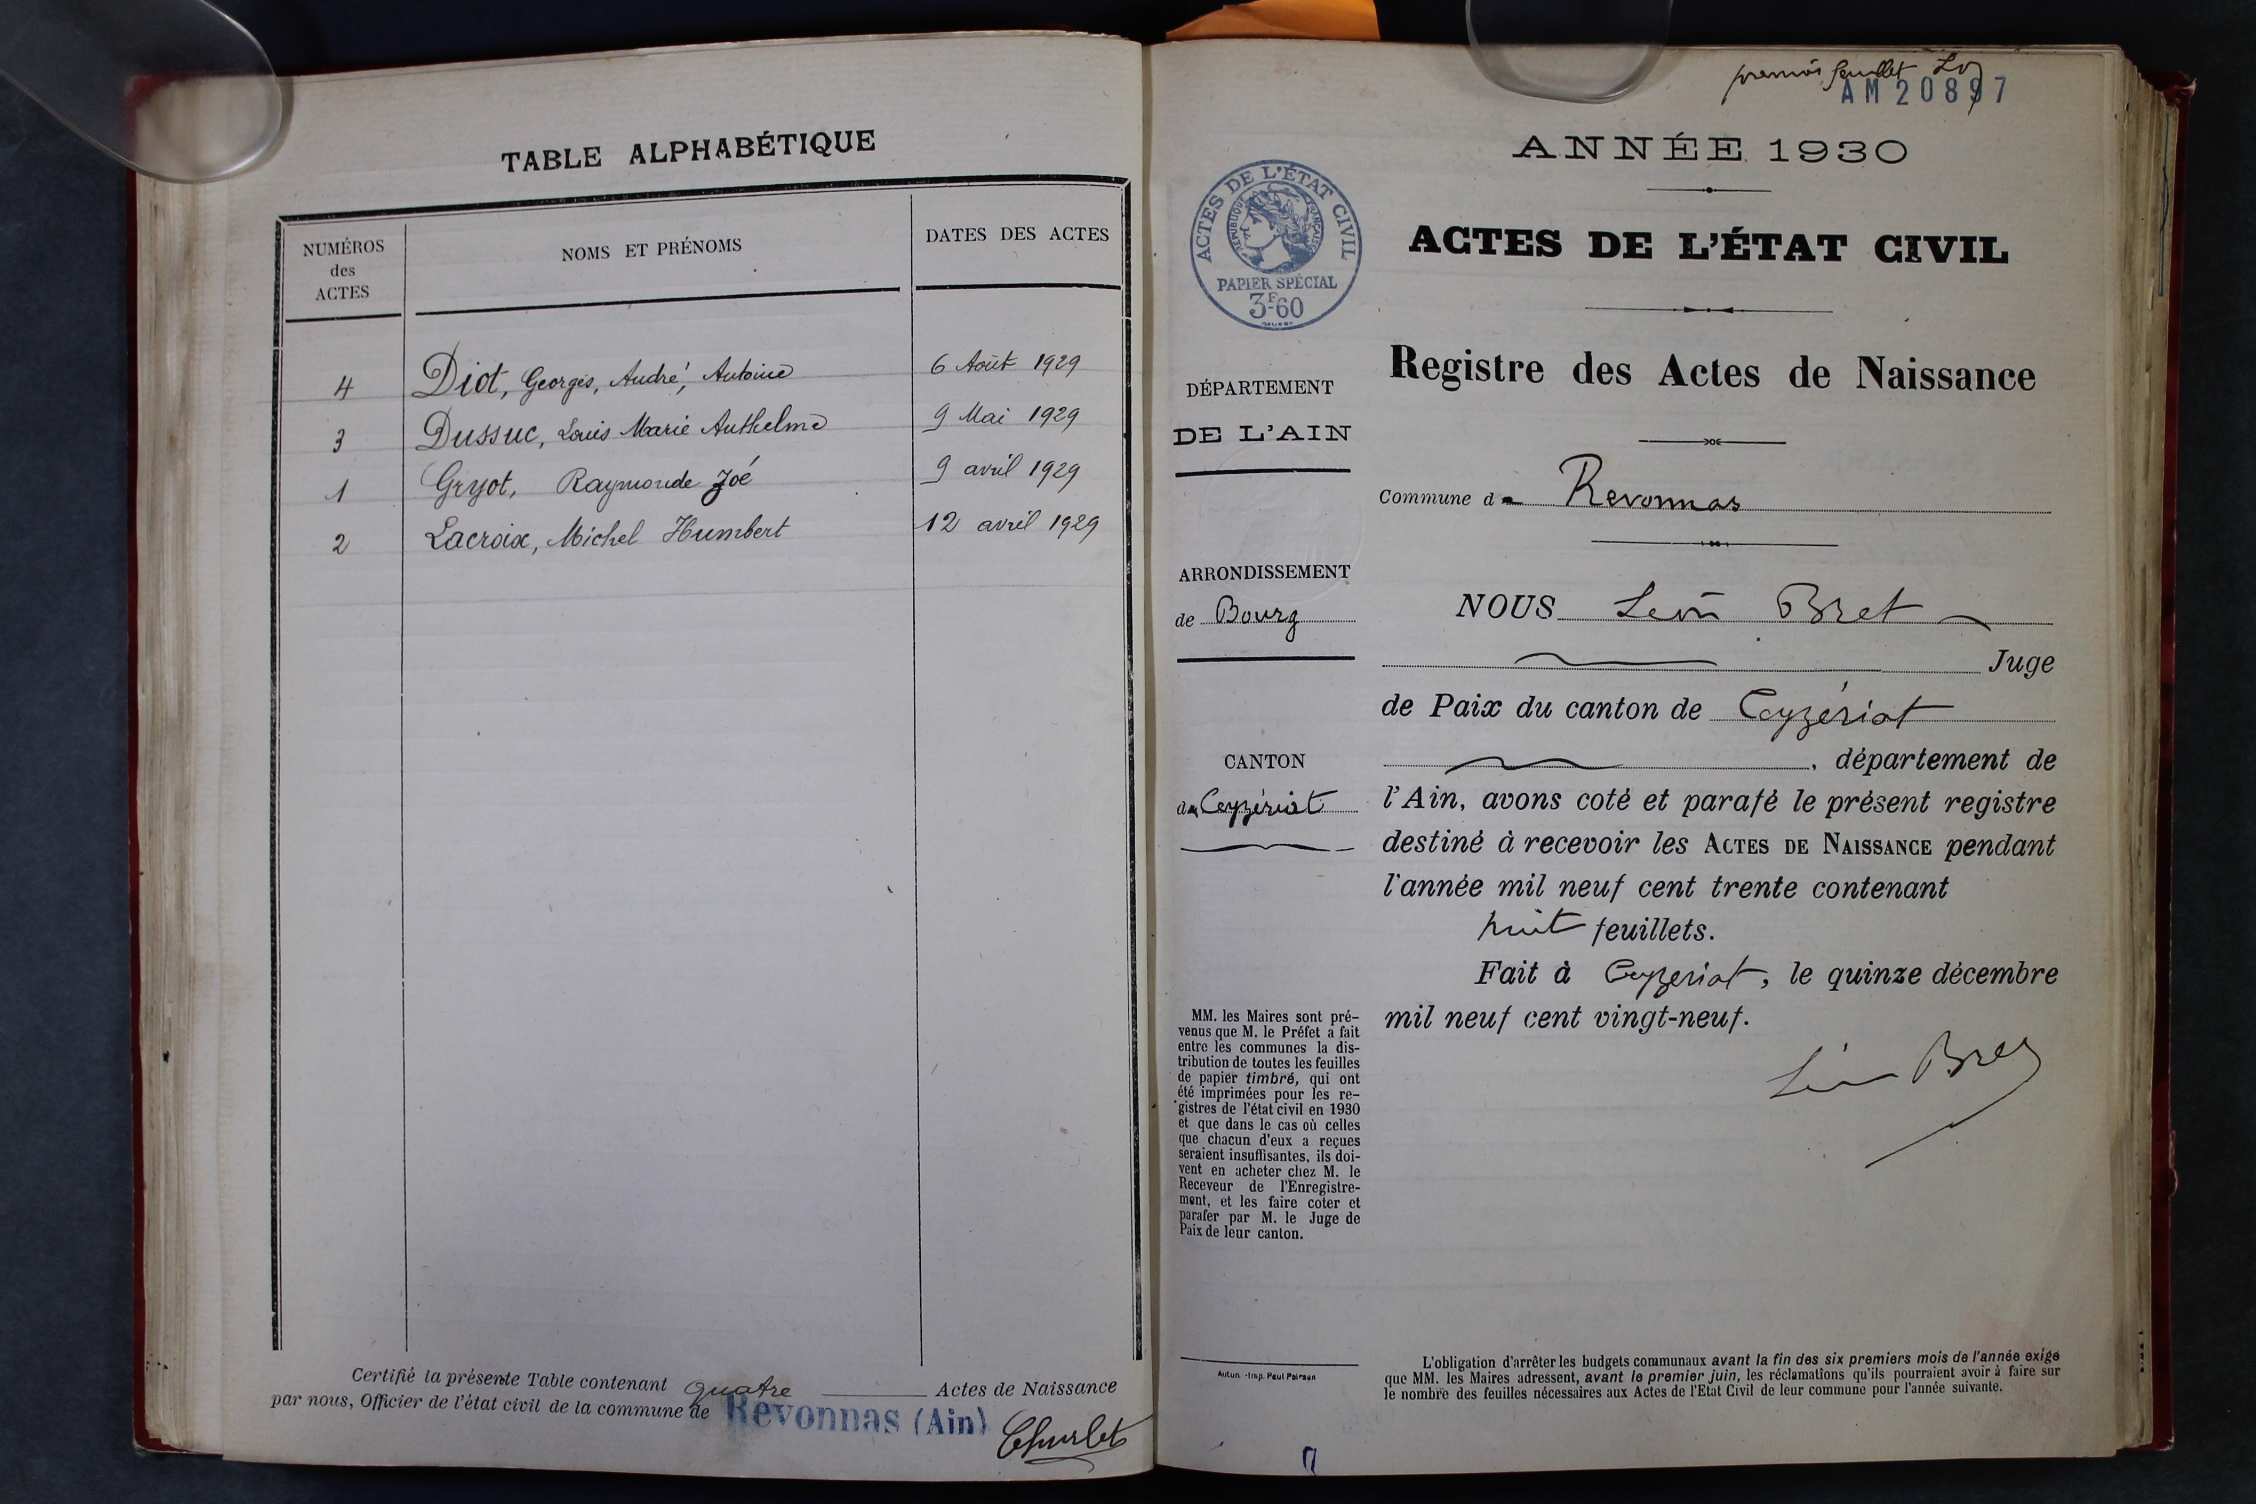 TABLE ALPHABÉTIQUE
NUMÉROS
des
ACTES
NOMS ET PRÉNOMS
DATES DES ACTES
4 Diot, Georges, André, Antoine 6 Août 1929
3 Dussuc, Louis Marie Anthelme 9 Mai 1929
1 Gryot, Raymonde Zoé 9 avril 1929
2 Lacroix, Michel Humbert 12 avril 1929
Certifié la présente Table contenant quatre Actes de Naissance
par nous, Officier de l'état civil de la commune de Revonnas (Ain)
premier feuillet
AM 20897
ANNÉE 1930
ACTES DE L'ÉTAT CIVIL
RÉPUBLIQUE FRANÇAISE
PAPIER SPÉCIAL
3F60
ACTES DE L'ÉTAT CIVIL
Registre des Actes de Naissance
DÉPARTEMENT
DE L'AIN
Commune de Revonnas
ARRONDISSEMENT
de Bourg
NOUS Léon Bret
Juge
de Paix du canton de Ceyzériat
CANTON
de Ceyzériat
, département de
l'Ain, avons coté et parafé le présent registre
destiné à recevoir les ACTES DE NAISSANCE pendant
l'année mil neuf cent trente contenant
huit feuillets.
Fait à Ceyzeriat, le quinze décembre
mil neuf cent vingt-neuf.
Léon Bret
MM. les Maires sont pré-
venus que M. le Préfet a fait
entre les communes la dis-
tribution de toutes les feuilles
de papier timbré, qui ont
été imprimées pour les re-
gistres de l'état civil en 1930
et que dans le cas où celles
que chacun d'eux a reçues
seraient insuffisantes, ils doi-
vent en acheter chez M. le
Receveur de l'Enregistre-
ment, et les faire coter et
parafer par M. le Juge de
Paix de leur canton.
Autun. - Imp. Paul Poirson
L'obligation d'arrêter les budgets communaux avant la fin des six premiers mois de l'année exige
que MM. les Maires adressent, avant le premier juin, les réclamations qu'ils pourraient avoir à faire sur
le nombre des feuilles nécessaires aux Actes de l'Etat Civil de leur commune pour l'année suivante.